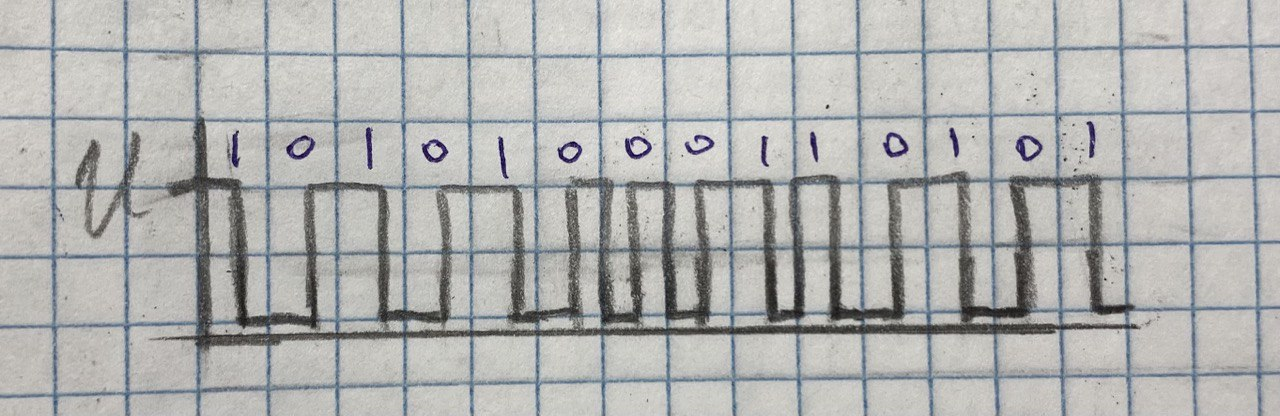 1 0 1 0 1 0 0 0 1 1 0 1 0 1
U